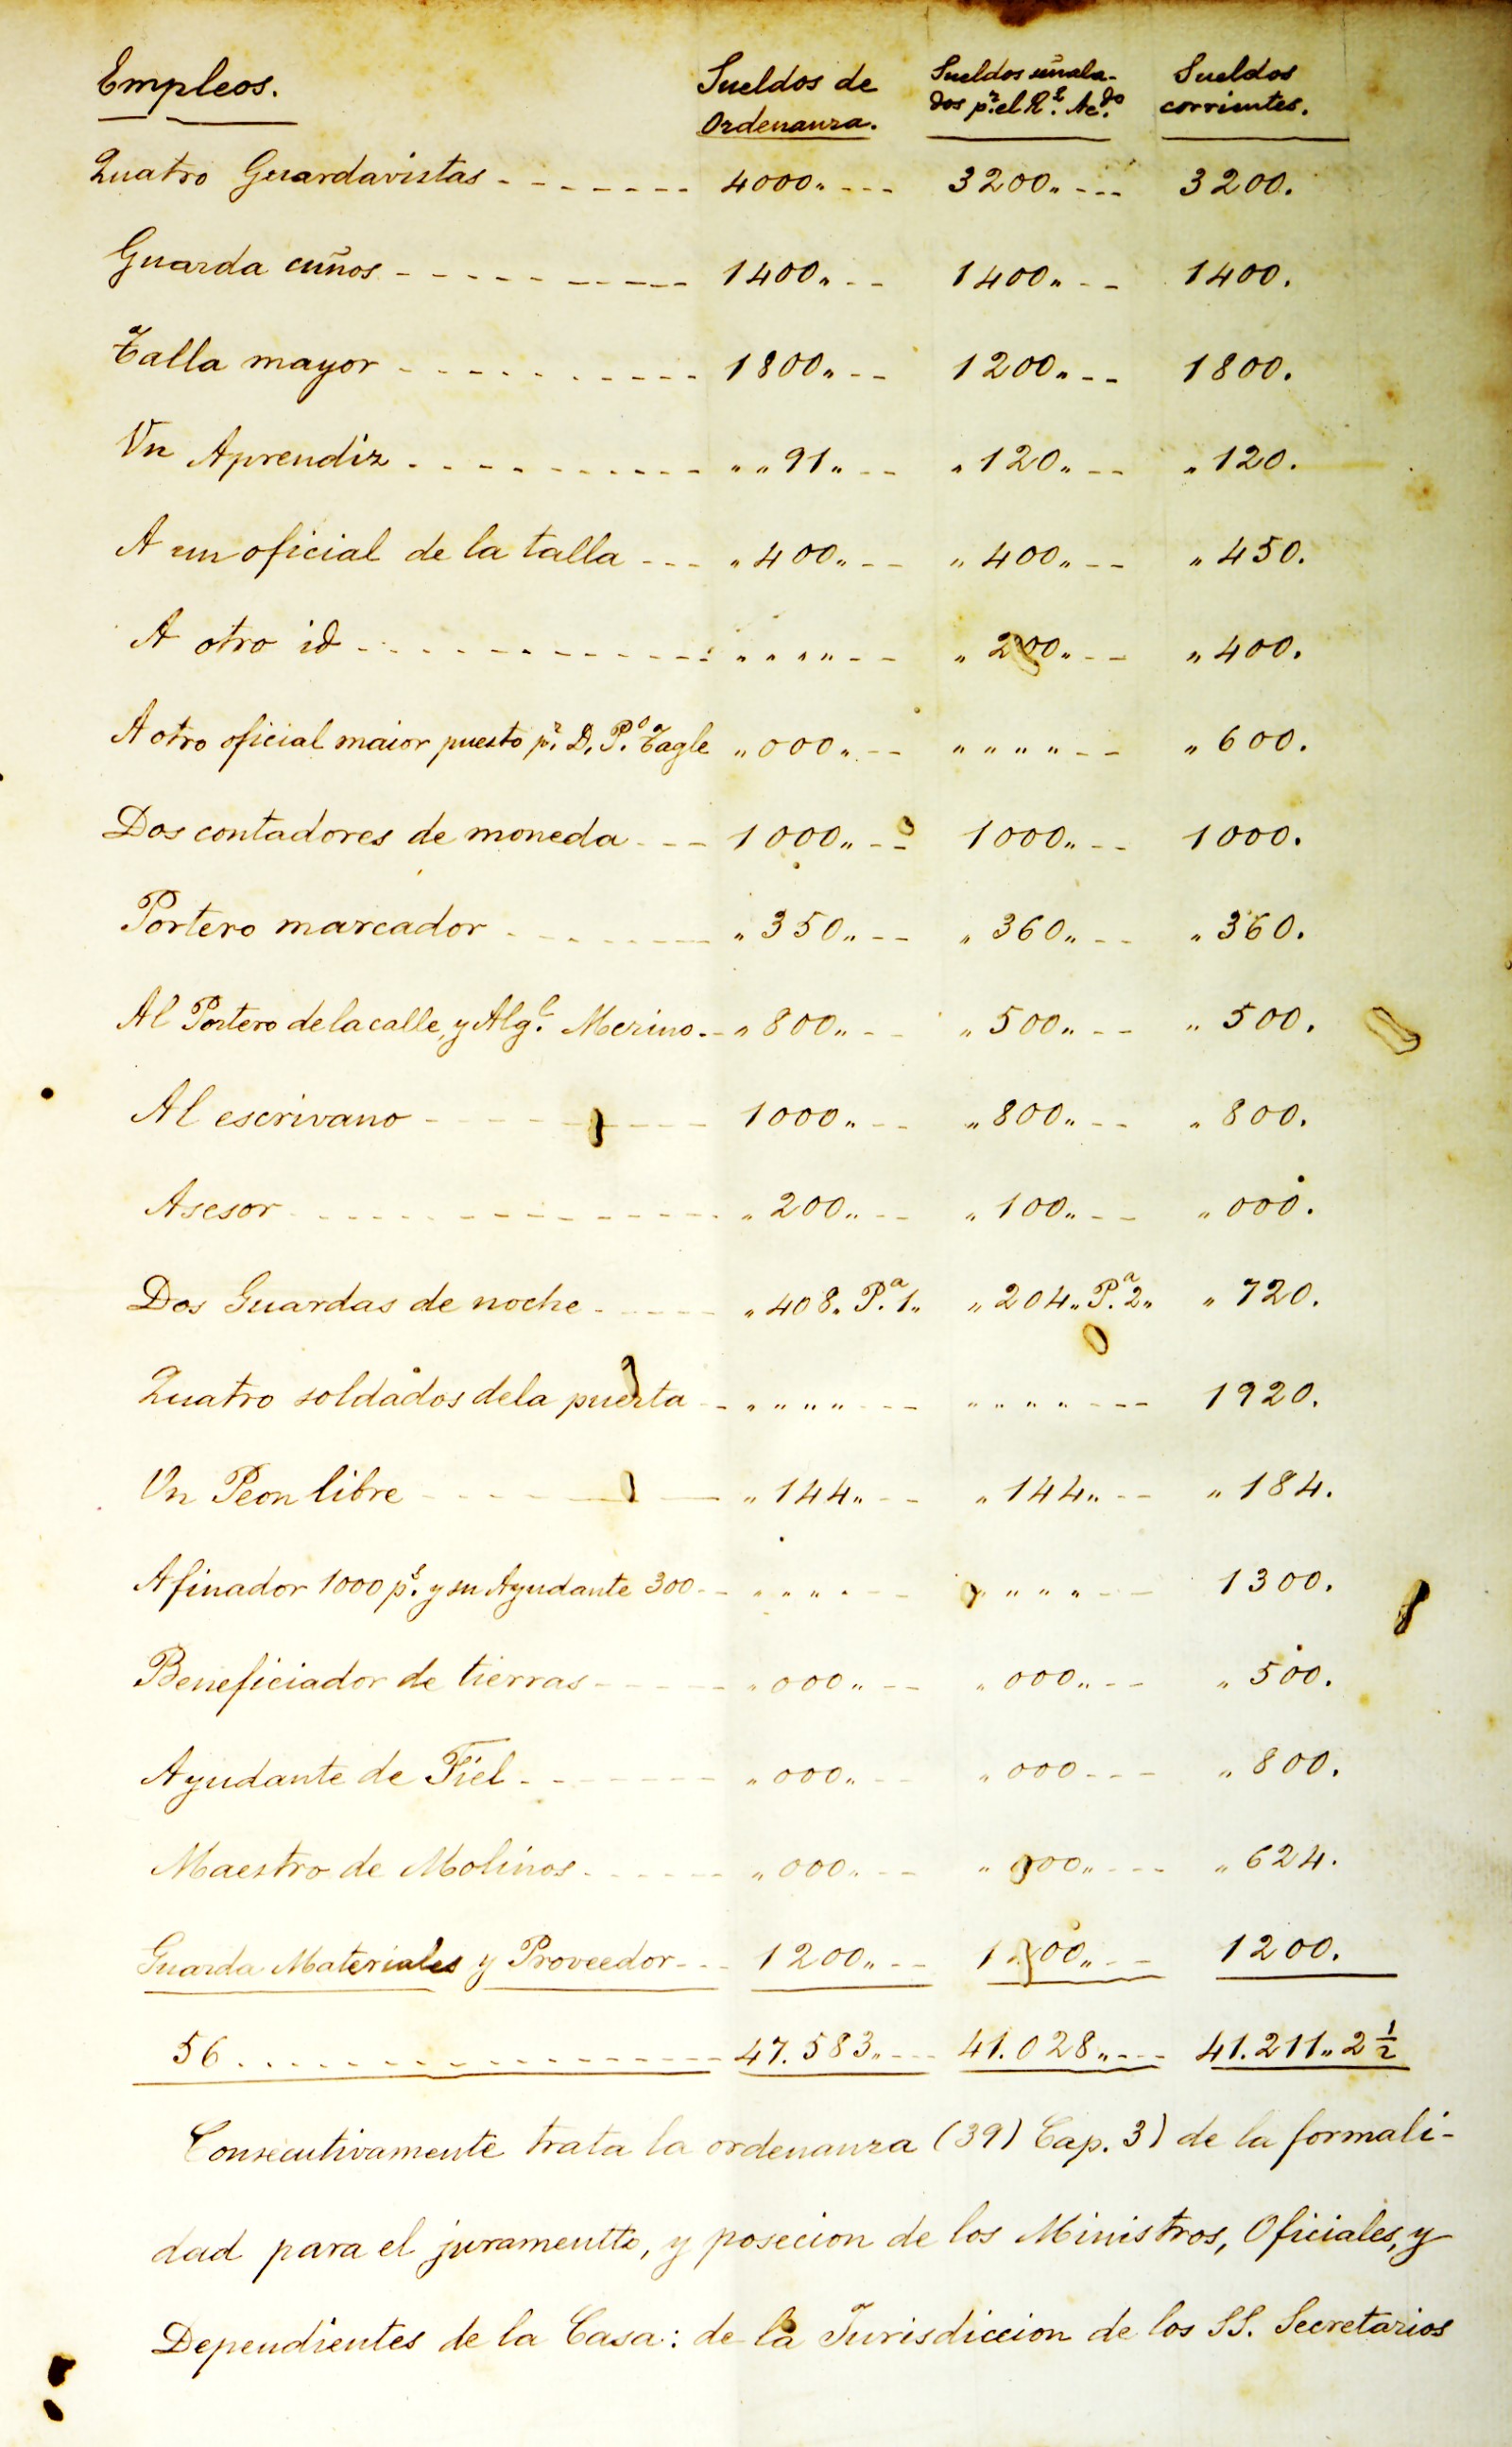 Empleos. Sueldos de Ordenanza. Sueldos señala-dos pr. el Rl. Acdo. Sueldos corrientes.
Quatro Guardavistas - - - - - - - 4000„ - - - 3200„ - - - 3200.
Guarda cuños - - - - - - - - - - 1400„ - - 1400„ - - 1400.
Talla mayor - - - - - - - - - - - 1800„ - - 1200„ - - 1800.
Vn Aprendiz - - - - - - - - - - - „ „ 91„ - - „ 120„ - - „ 120.
A un oficial de la talla - - - „ 400„ - - „ 400„ - - „ 450.
A otro id - - - - - - - - - - - - „ „ „ „ - - „ 200„ - - „ 400.
A otro oficial maior puesto pr. D. Po. Tagle „ 000„ - - „ „ „ „ - - „ 600.
Dos contadores de moneda - - - 1000„ - - 1000„ - - 1000.
Portero marcador - - - - - - - „ 350„ - - „ 360„ - - „ 360.
Al Portero de la calle, y Algl. Merino - - „ 800„ - - „ 500„ - - „ 500.
Al escrivano - - - - - - - - 1000„ - - „ 800„ - - „ 800.
Asesor - - - - - - - - - - - - - „ 200„ - - „ 100„ - - „ 000.
Dos Guardas de noche - - - - - „ 408„ Pa. 1„ „ 204„ Pa. 2„ „ 720.
Quatro soldados de la puerta - - „ „ „ „ - - - „ „ „ „ - - - 1920.
Vn Peon libre - - - - - - - „ 144„ - - „ 144„ - - „ 184.
Afinador 1000 ps. y su Ayudante 300 - - „ „ „ „ - - „ „ „ „ - - 1300.
Beneficiador de tierras - - - - - „ 000„ - - „ 000„ - - „ 500.
Ayudante de Fiel - - - - - - - „ 000„ - - „ 000 - - - „ 800.
Maestro de Molinos - - - - - - „ 000„ - - „ 000„ - - - „ 624.
Guarda Materiales y Proveedor - - - 1200„ - - 1200„ - - 1200.
56 . . . . . . . - - - - - - - - - - 47.583„ - - - 41.028„ - - - 41.211„ 2 1/2
Consecutivamente trata la ordenanza (39) Cap. 3) de la formali-
dad para el juramentto, y posecion de los Ministros, Oficiales, y
Dependientes de la Casa: de la Jurisdiccion de los SS. Secretarios